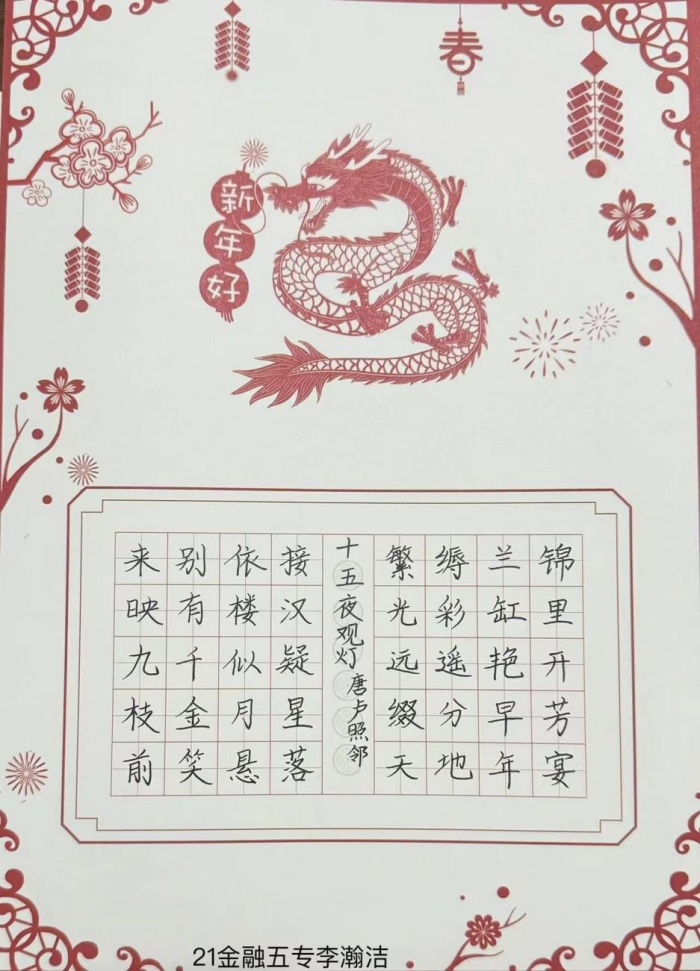 春
新年好
锦里开芳宴
兰缸艳早年
缛彩遥分地
繁光远缀天
十五夜观灯 唐卢照邻
接汉疑星落
依楼似月悬
别有千金笑
来映九枝前
21金融五专李瀚洁